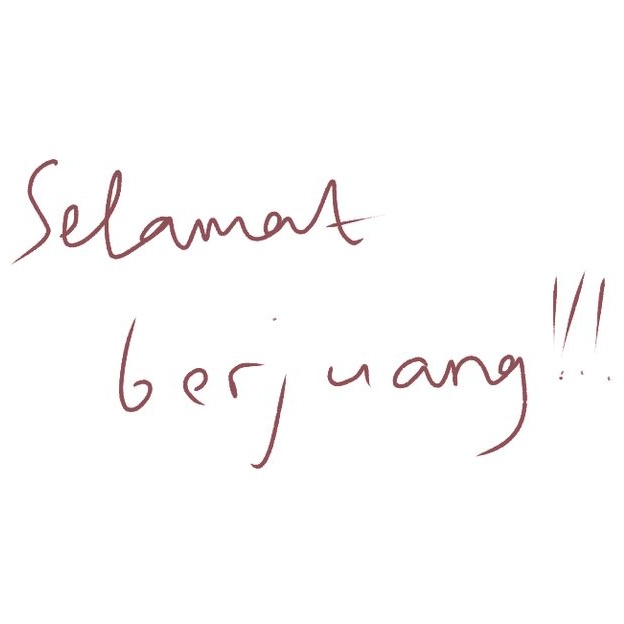 Selamat
berjuang!!!